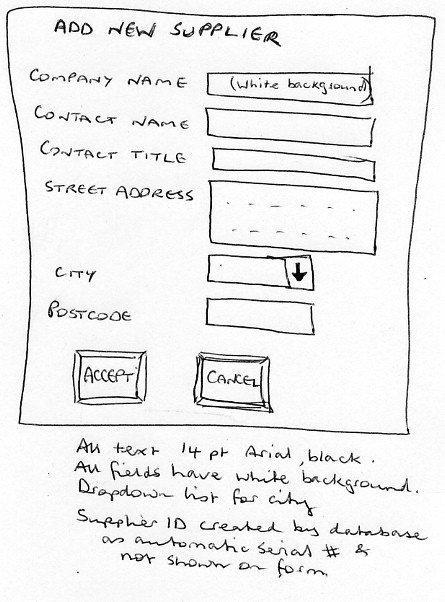 ADD NEW SUPPLIER
COMPANY NAME (White background)
CONTACT NAME
CONTACT TITLE
STREET ADDRESS
CITY
POSTCODE
ACCEPT CANCEL
All text 14 pt Arial, black.
All fields have white background.
Dropdown list for city
Supplier ID created by database
as automatic serial # &
not shown on form.